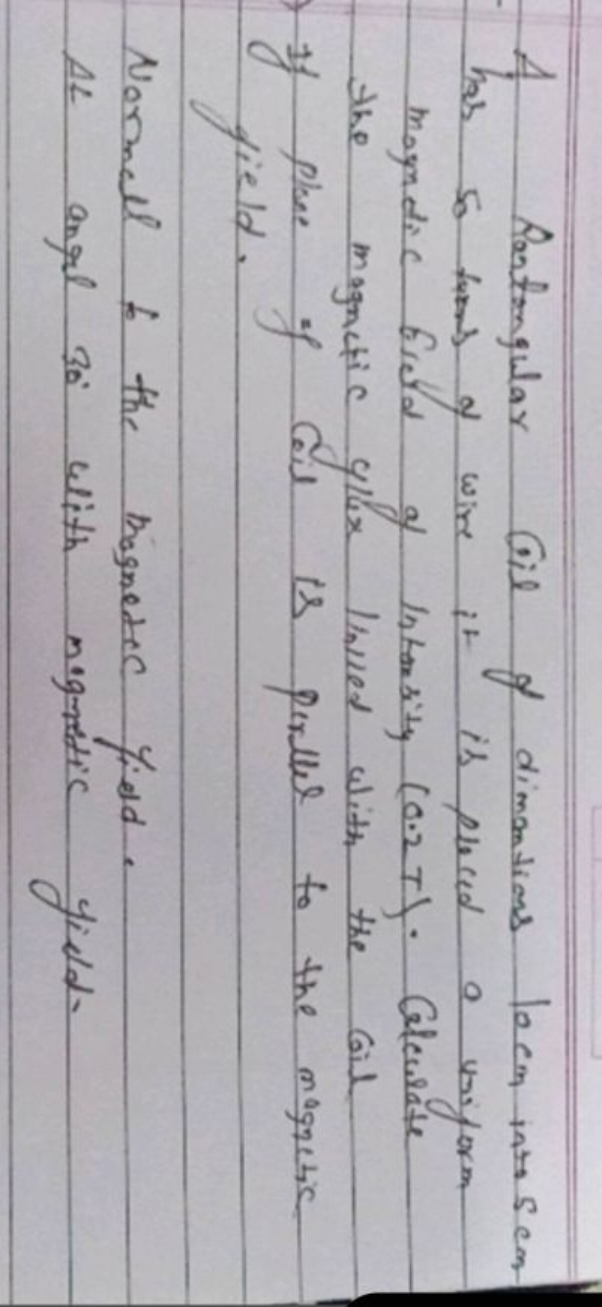 A Rectangular Coil of dimantions 10cm into 5 cm
has 50 turns of wire it is placed a uniform
magnetic field of Intensity (0.2 T). Calculate
the magnetic flux linked with the Coil
If plane of Coil is parallel to the magnetic
field.
Normall to the magnetic field.
At angel 30° with magnetic field.